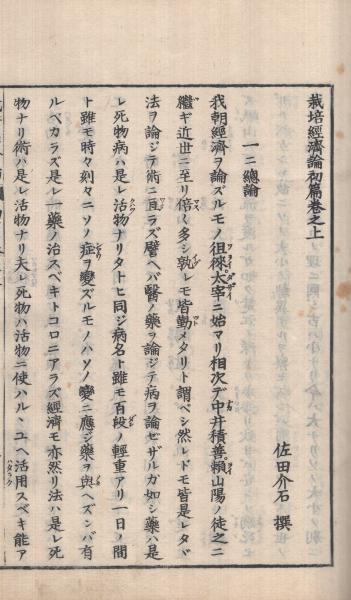 栽培經濟論初篇卷之上
佐田介石 撰
一ニ總論
我朝經濟ヲ論ズルモノ徂徠太宰ニ始マリ相次デ中井積善賴山陽ノ徒之ニ
繼ギ近世ニ至リ倍々多シ孰レモ皆勤メタリト謂ベシ然レドモ皆是レタヾ
法ヲ論ジテ術ニ亘ラズ譬ヘバ醫ノ藥ヲ論ジテ病ヲ論ゼザルガ如シ藥ハ是
レ死物病ハ是レ活物ナリタトヒ同ジ病名ト雖モ百段ノ輕重アリ一日ノ間
ト雖モ時々刻々ニソノ症ヲ變ズルモノハソノ變ニ應ジ藥ヲ與ヘズンバ有
ルベカラズ是レ一藥ノ治スベキトコロニアラズ經濟モ亦然リ法ハ是レ死
物ナリ術ハ是レ活物ナリ夫レ死物ハ活物ニ使ハルヽユヘ活用スベキ能ア